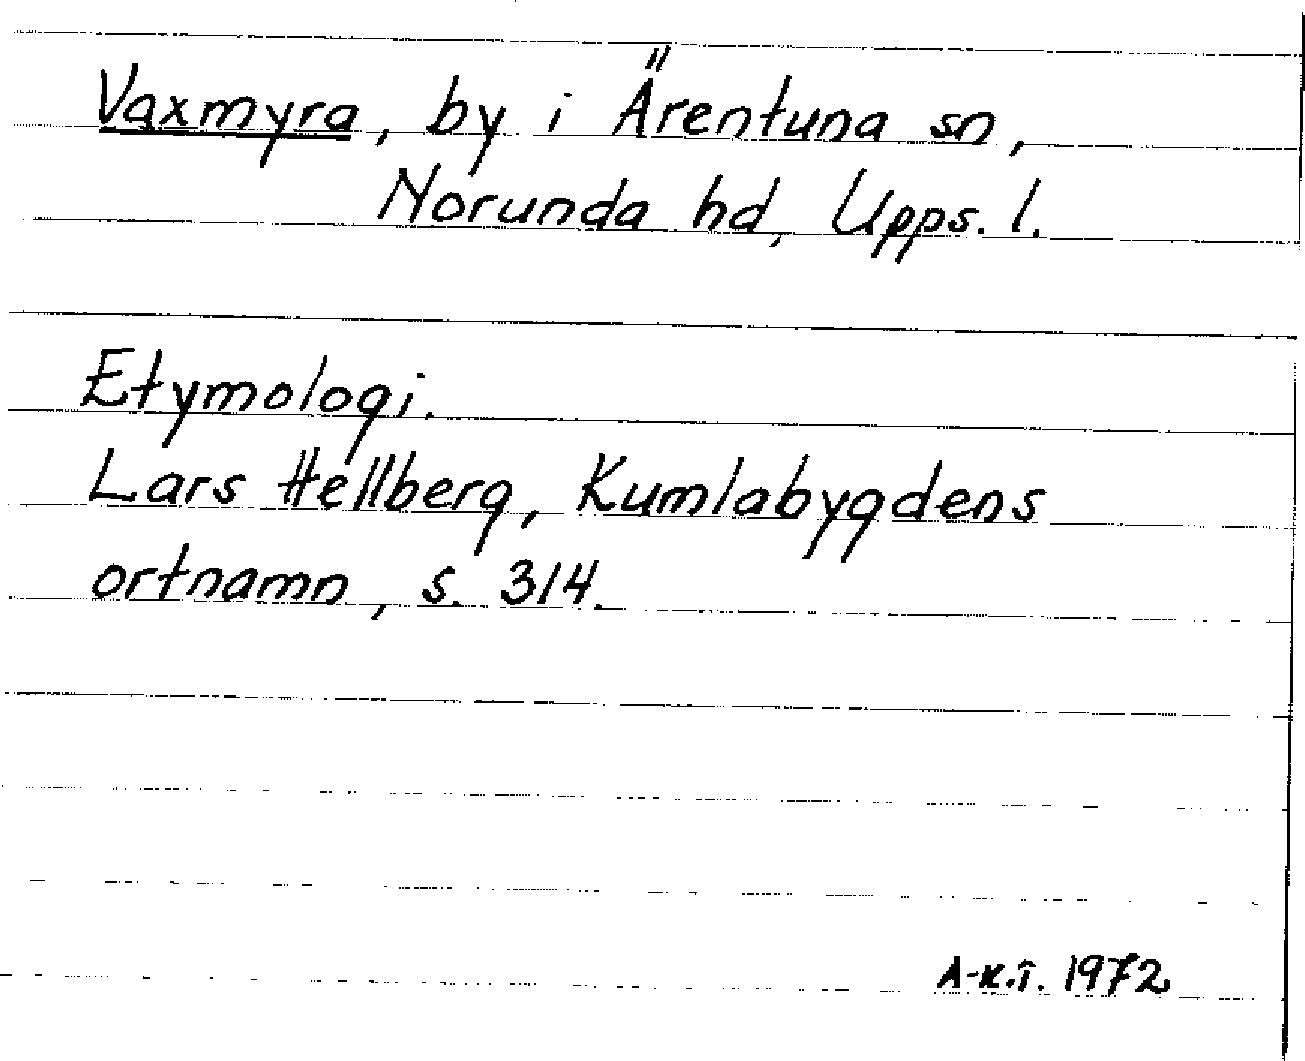 Vaxmyra, by i Ärentuna sn,
Norunda hd, Upps. l.
Etymologi.
Lars Hellberg, Kumlabygdens
ortnamn, s. 314.
A-K.T. 1972